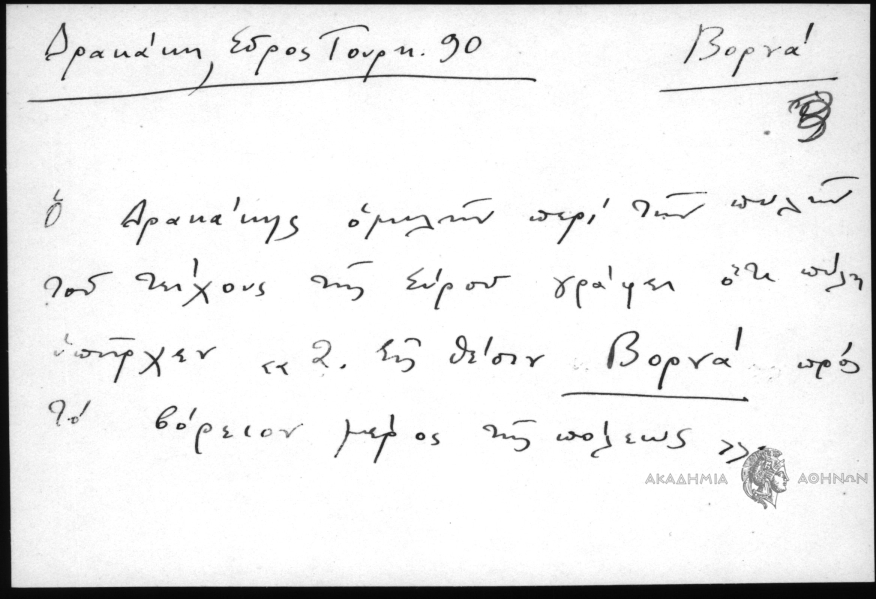 Δρακάκη, Σύρος Τουρκ. 90
Βορνά
ὁ Δρακάκης ὁμιλῶν περί τῶν πυλῶν
τοῦ τείχους τῆς Σύρου γράφει ὅτι πύλη
ὑπῆρχεν «2. εἰς θέσιν Βορνά πρός
τό βόρειον μέρος τῆς πόλεως».
ΑΚΑΔΗΜΙΑ ΑΘΗΝΩΝ